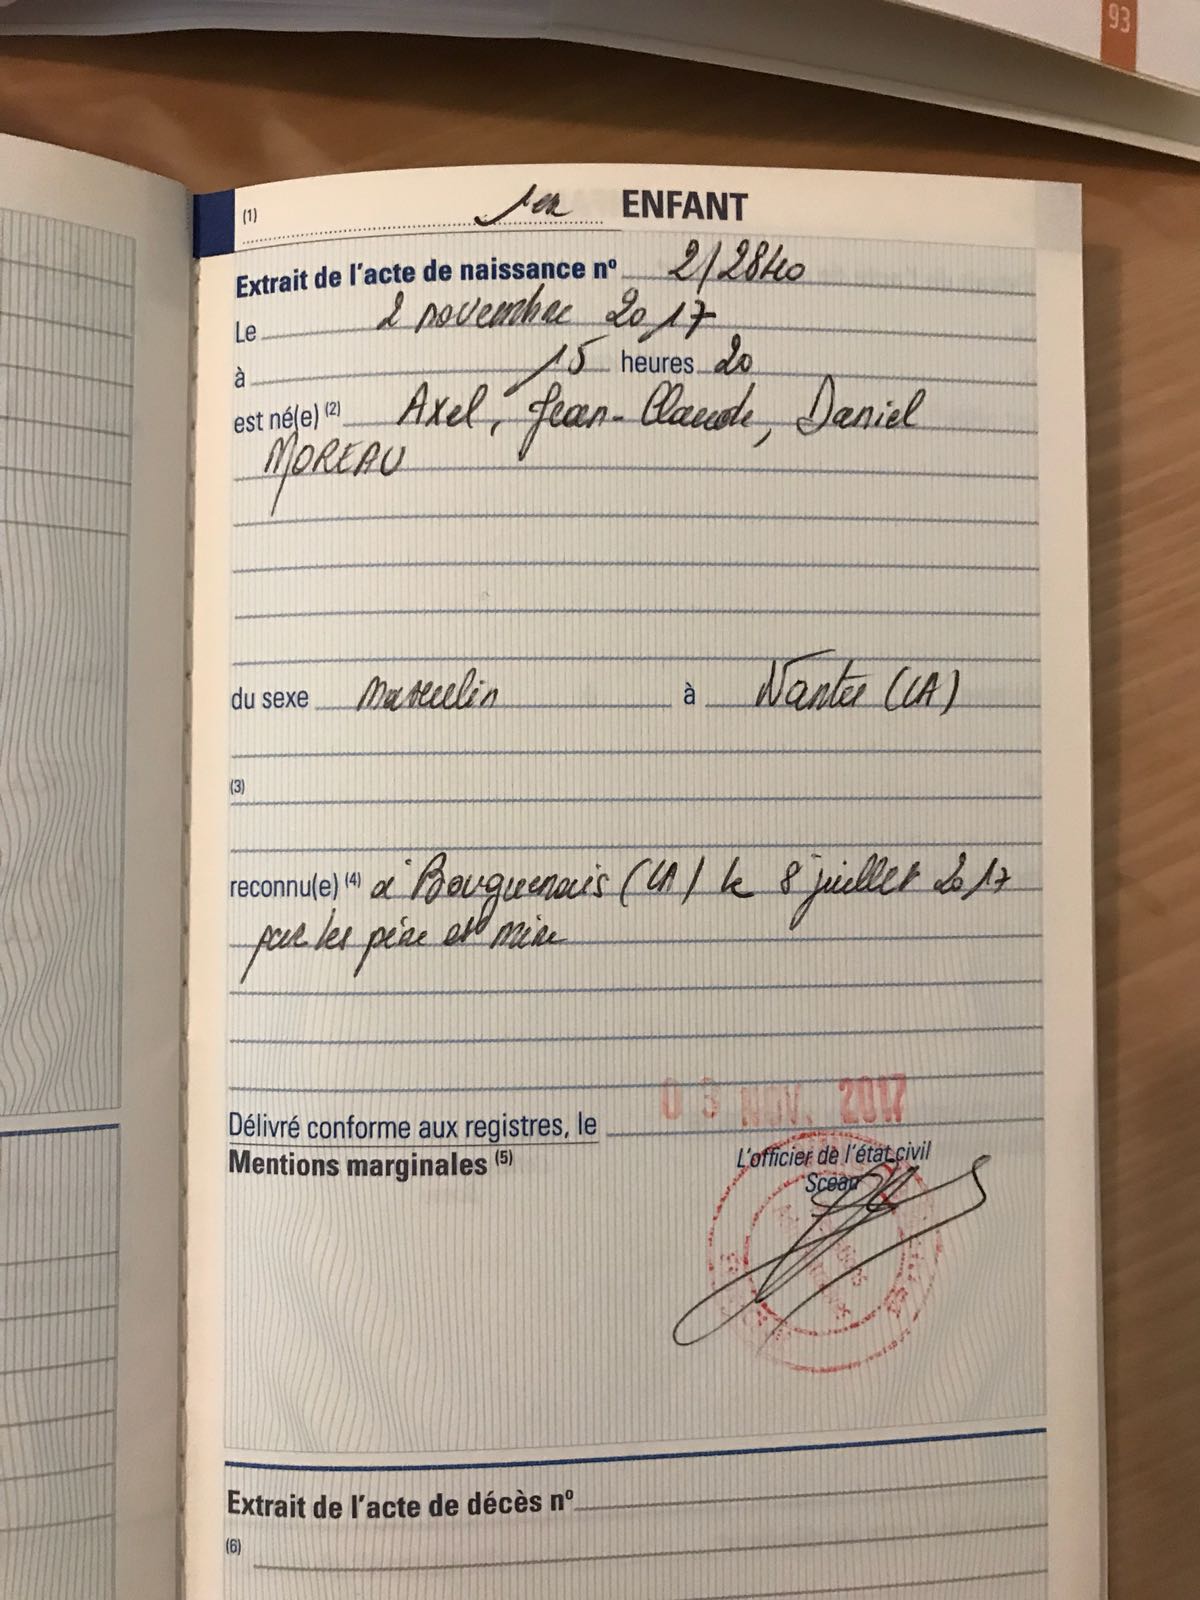 93
(1) 1er ENFANT
Extrait de l'acte de naissance nº 2/2840
Le 2 novembre 2017
à 15 heures 20
est né(e) (2) Axel, Jean-Claude, Daniel
MOREAU
du sexe masculin à Nantes (LA)
(3)
reconnu(e) (4) à Bouguenais (LA) le 8 juillet 2017
par les père et mère
Délivré conforme aux registres, le NOV. 2017
Mentions marginales (5)
L'officier de l'état civil
Sceau
Extrait de l'acte de décès nº
(6)